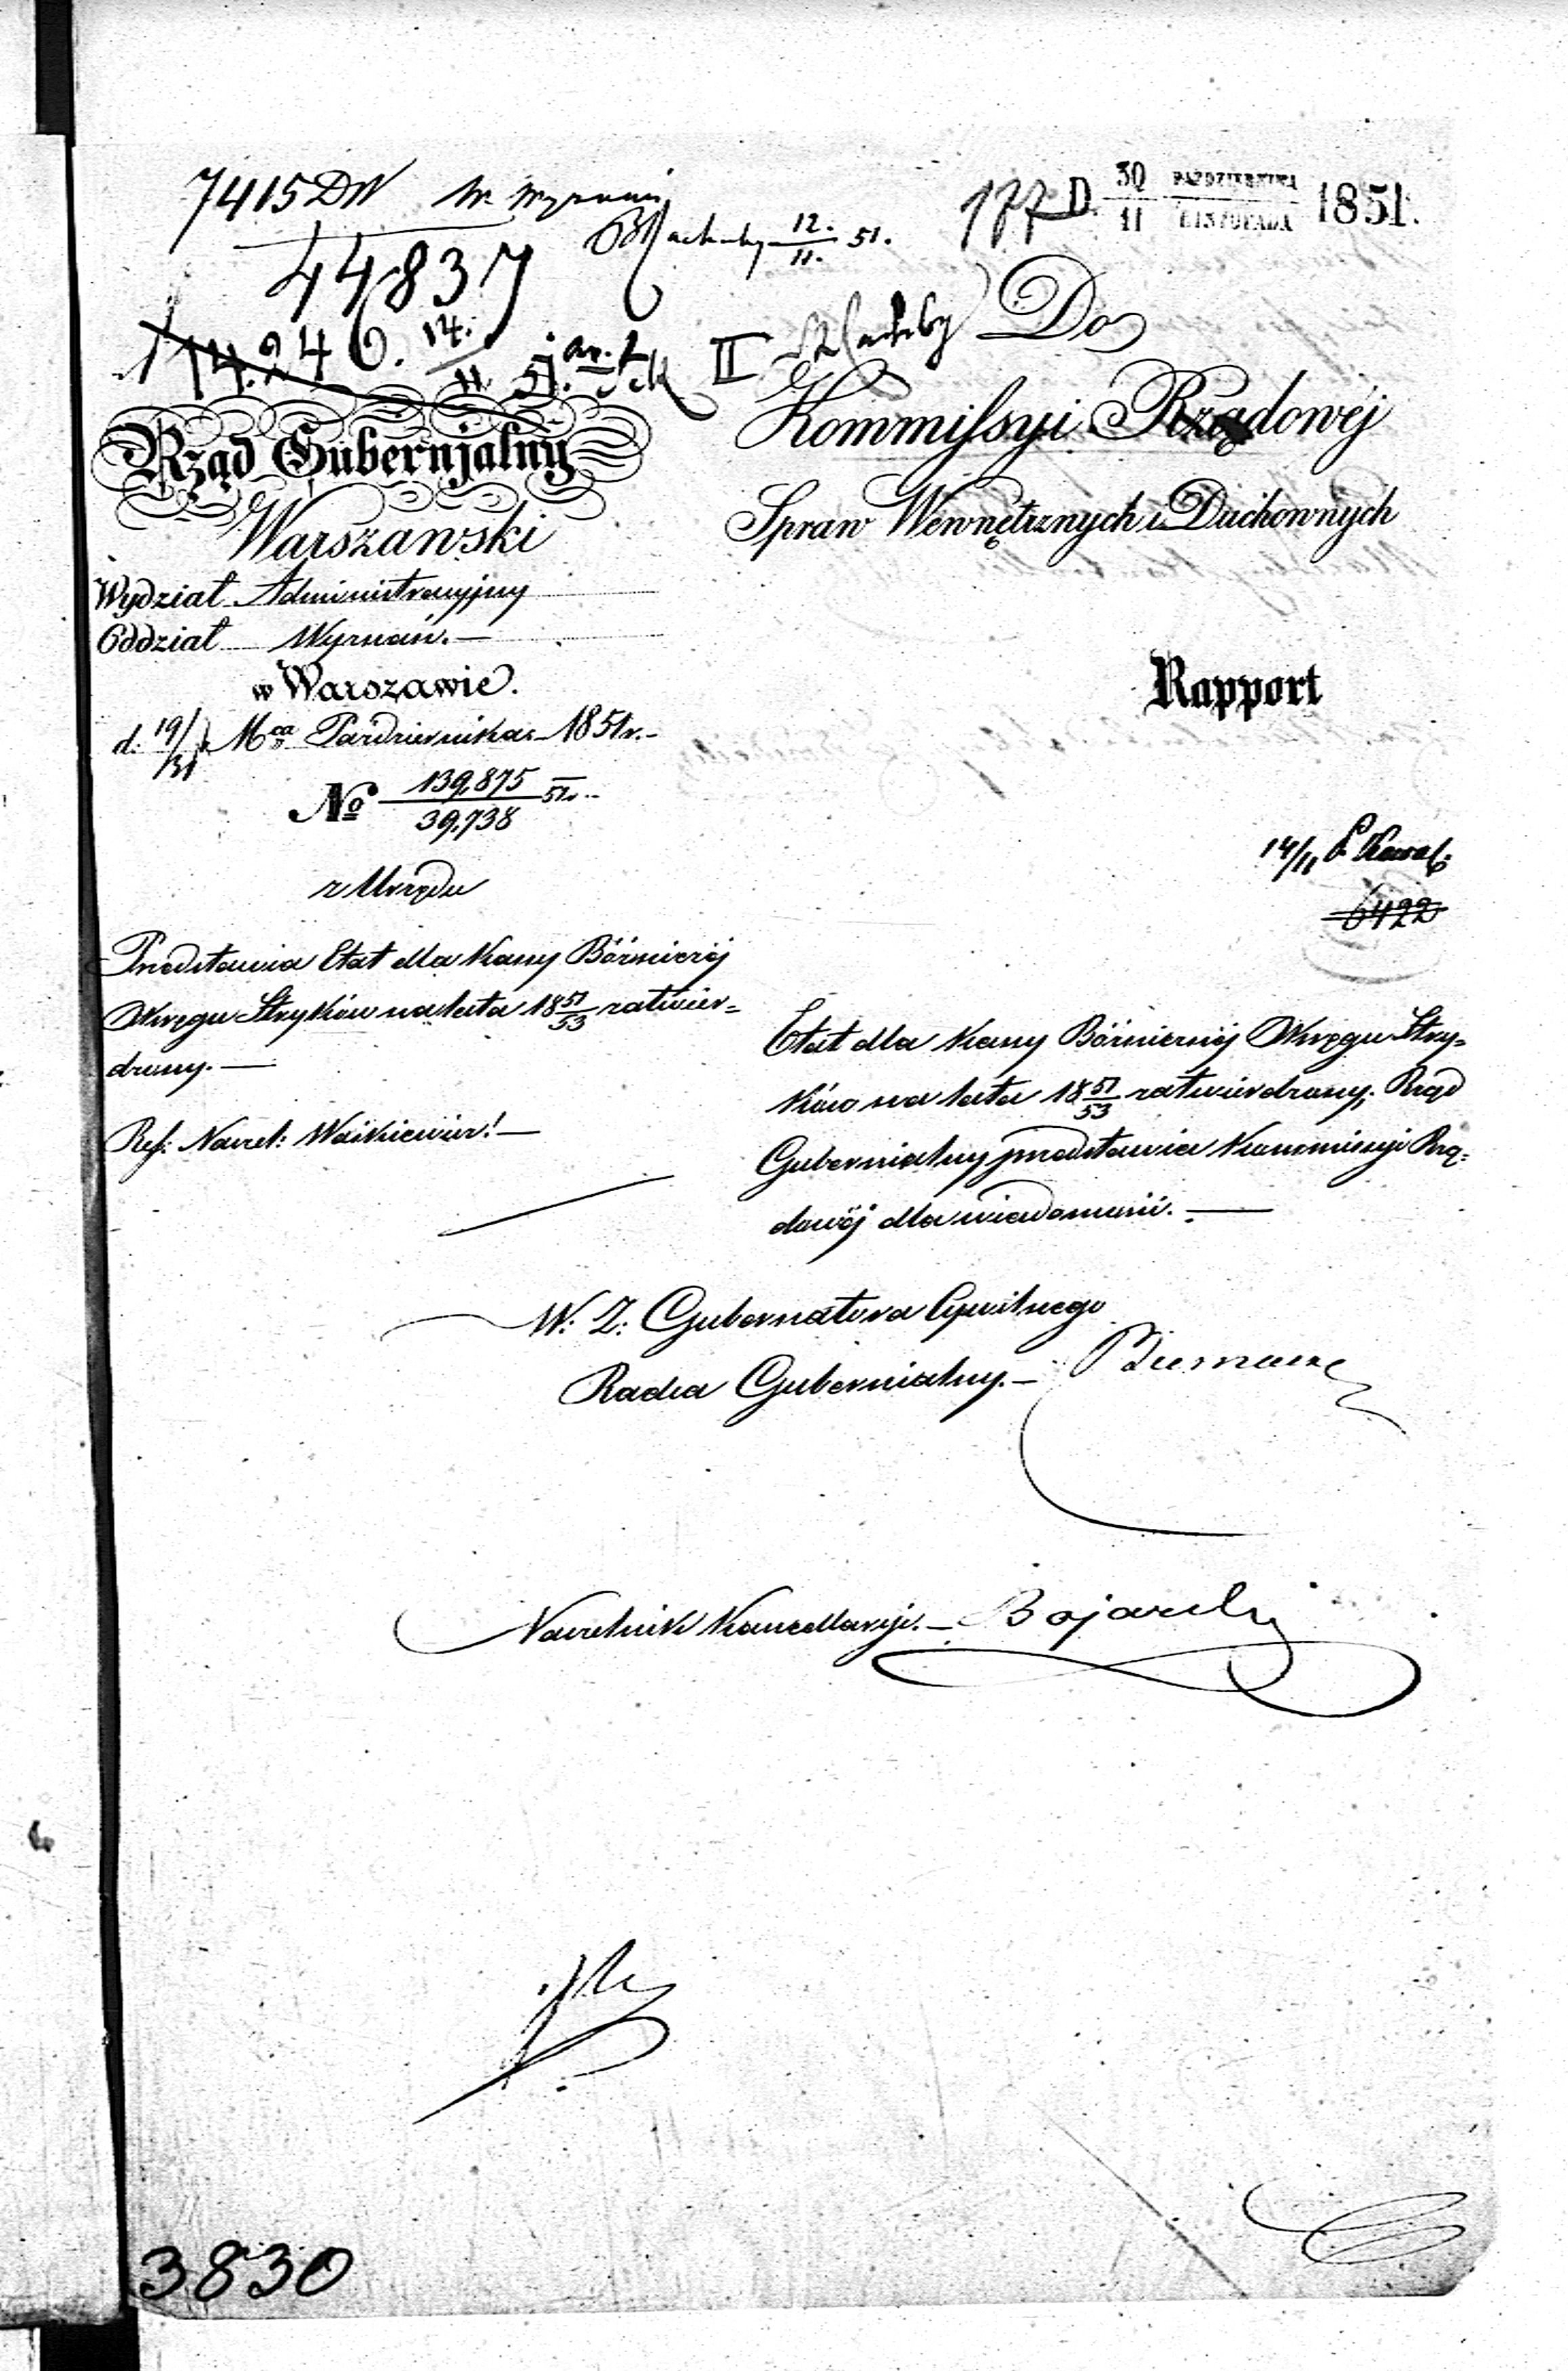 7415 DW W. Wyznań
44837
12./11. 51.
177 D. 30/11 PAŹDZIERNIKA/LISTOPADA 1851.
14.246. 14./11. 51.
II
Do
Kommissyi Rządowéj
Spraw Wewnętrznych i Duchownych
Rząd Gubernjalny
Warszawski
Wydział Administracyjny
Oddział Wyznań.—
w Warszawie.
d. 19/31 Mca Października 1851 r.—
No 139,875/39,738 51r.
z Urzędu
Rapport
14/11
6422
Przedstawia Etat dla Kassy Bóżniczéj
Okręgu Stryków na lata 18 51/53 zatwier=
dzony.—
Ref: Naczel: Waśkiewicz!—
Etat dla Kassy Bóżnicznéj Okręgu Stry=
ków na lata 18 51/53 zatwierdzony; Rząd
Gubernialny przedstawia Kommissyi Rzą=
dowéj dla wiadomości.—
W: Z: Gubernatora Cywilnego
Radca Gubernialny.—
Naczelnik Kancellaryi.—
3830